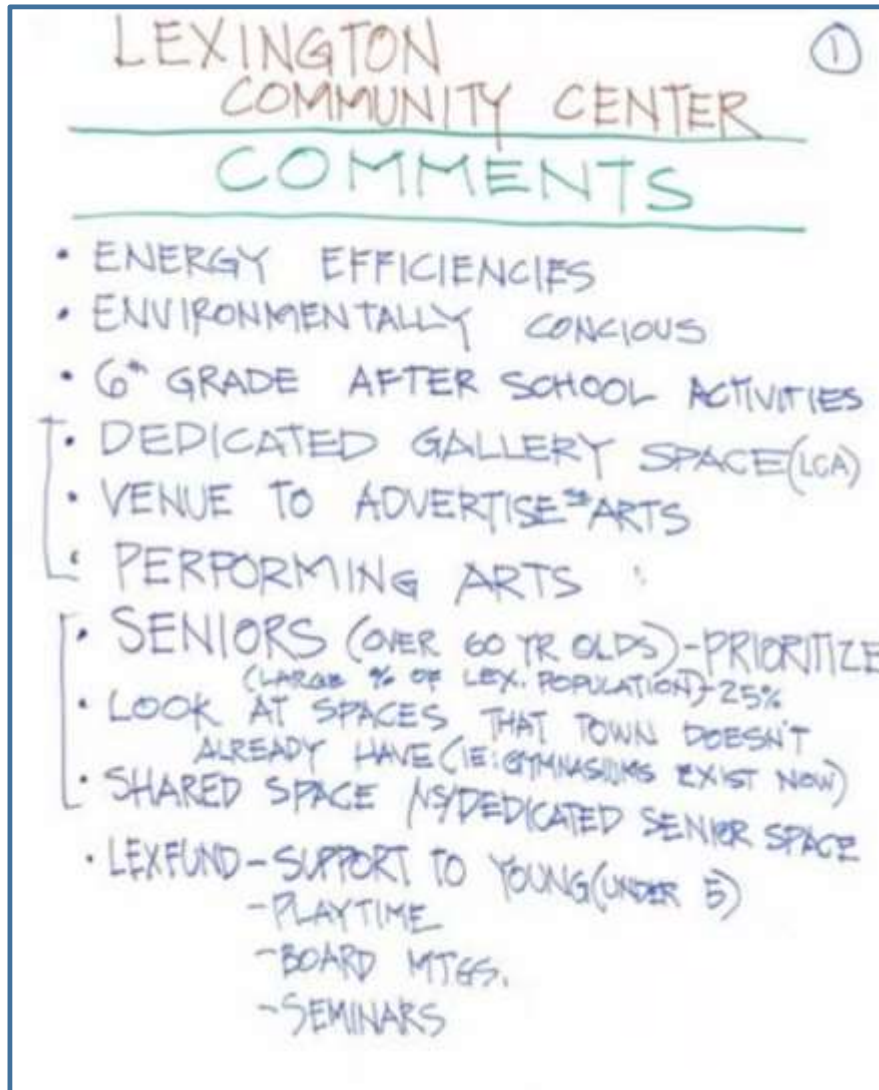 LEXINGTON
①
COMMUNITY CENTER
COMMENTS
• ENERGY EFFICIENCIES
• ENVIRONMENTALLY CONCIOUS
• 6th GRADE AFTER SCHOOL ACTIVITIES
• DEDICATED GALLERY SPACE (LCA)
• VENUE TO ADVERTISE ARTS
• PERFORMING ARTS
• SENIORS (OVER 60 YR OLDS) - PRIORITIZE
(LARGE % OF LEX. POPULATION) - 25%
• LOOK AT SPACES THAT TOWN DOESN'T
ALREADY HAVE (IE: GYMNASIUMS EXIST NOW)
• SHARED SPACE /VS/ DEDICATED SENIOR SPACE
• LEXFUND - SUPPORT TO YOUNG (UNDER 5)
- PLAYTIME
- BOARD MTGS.
- SEMINARS